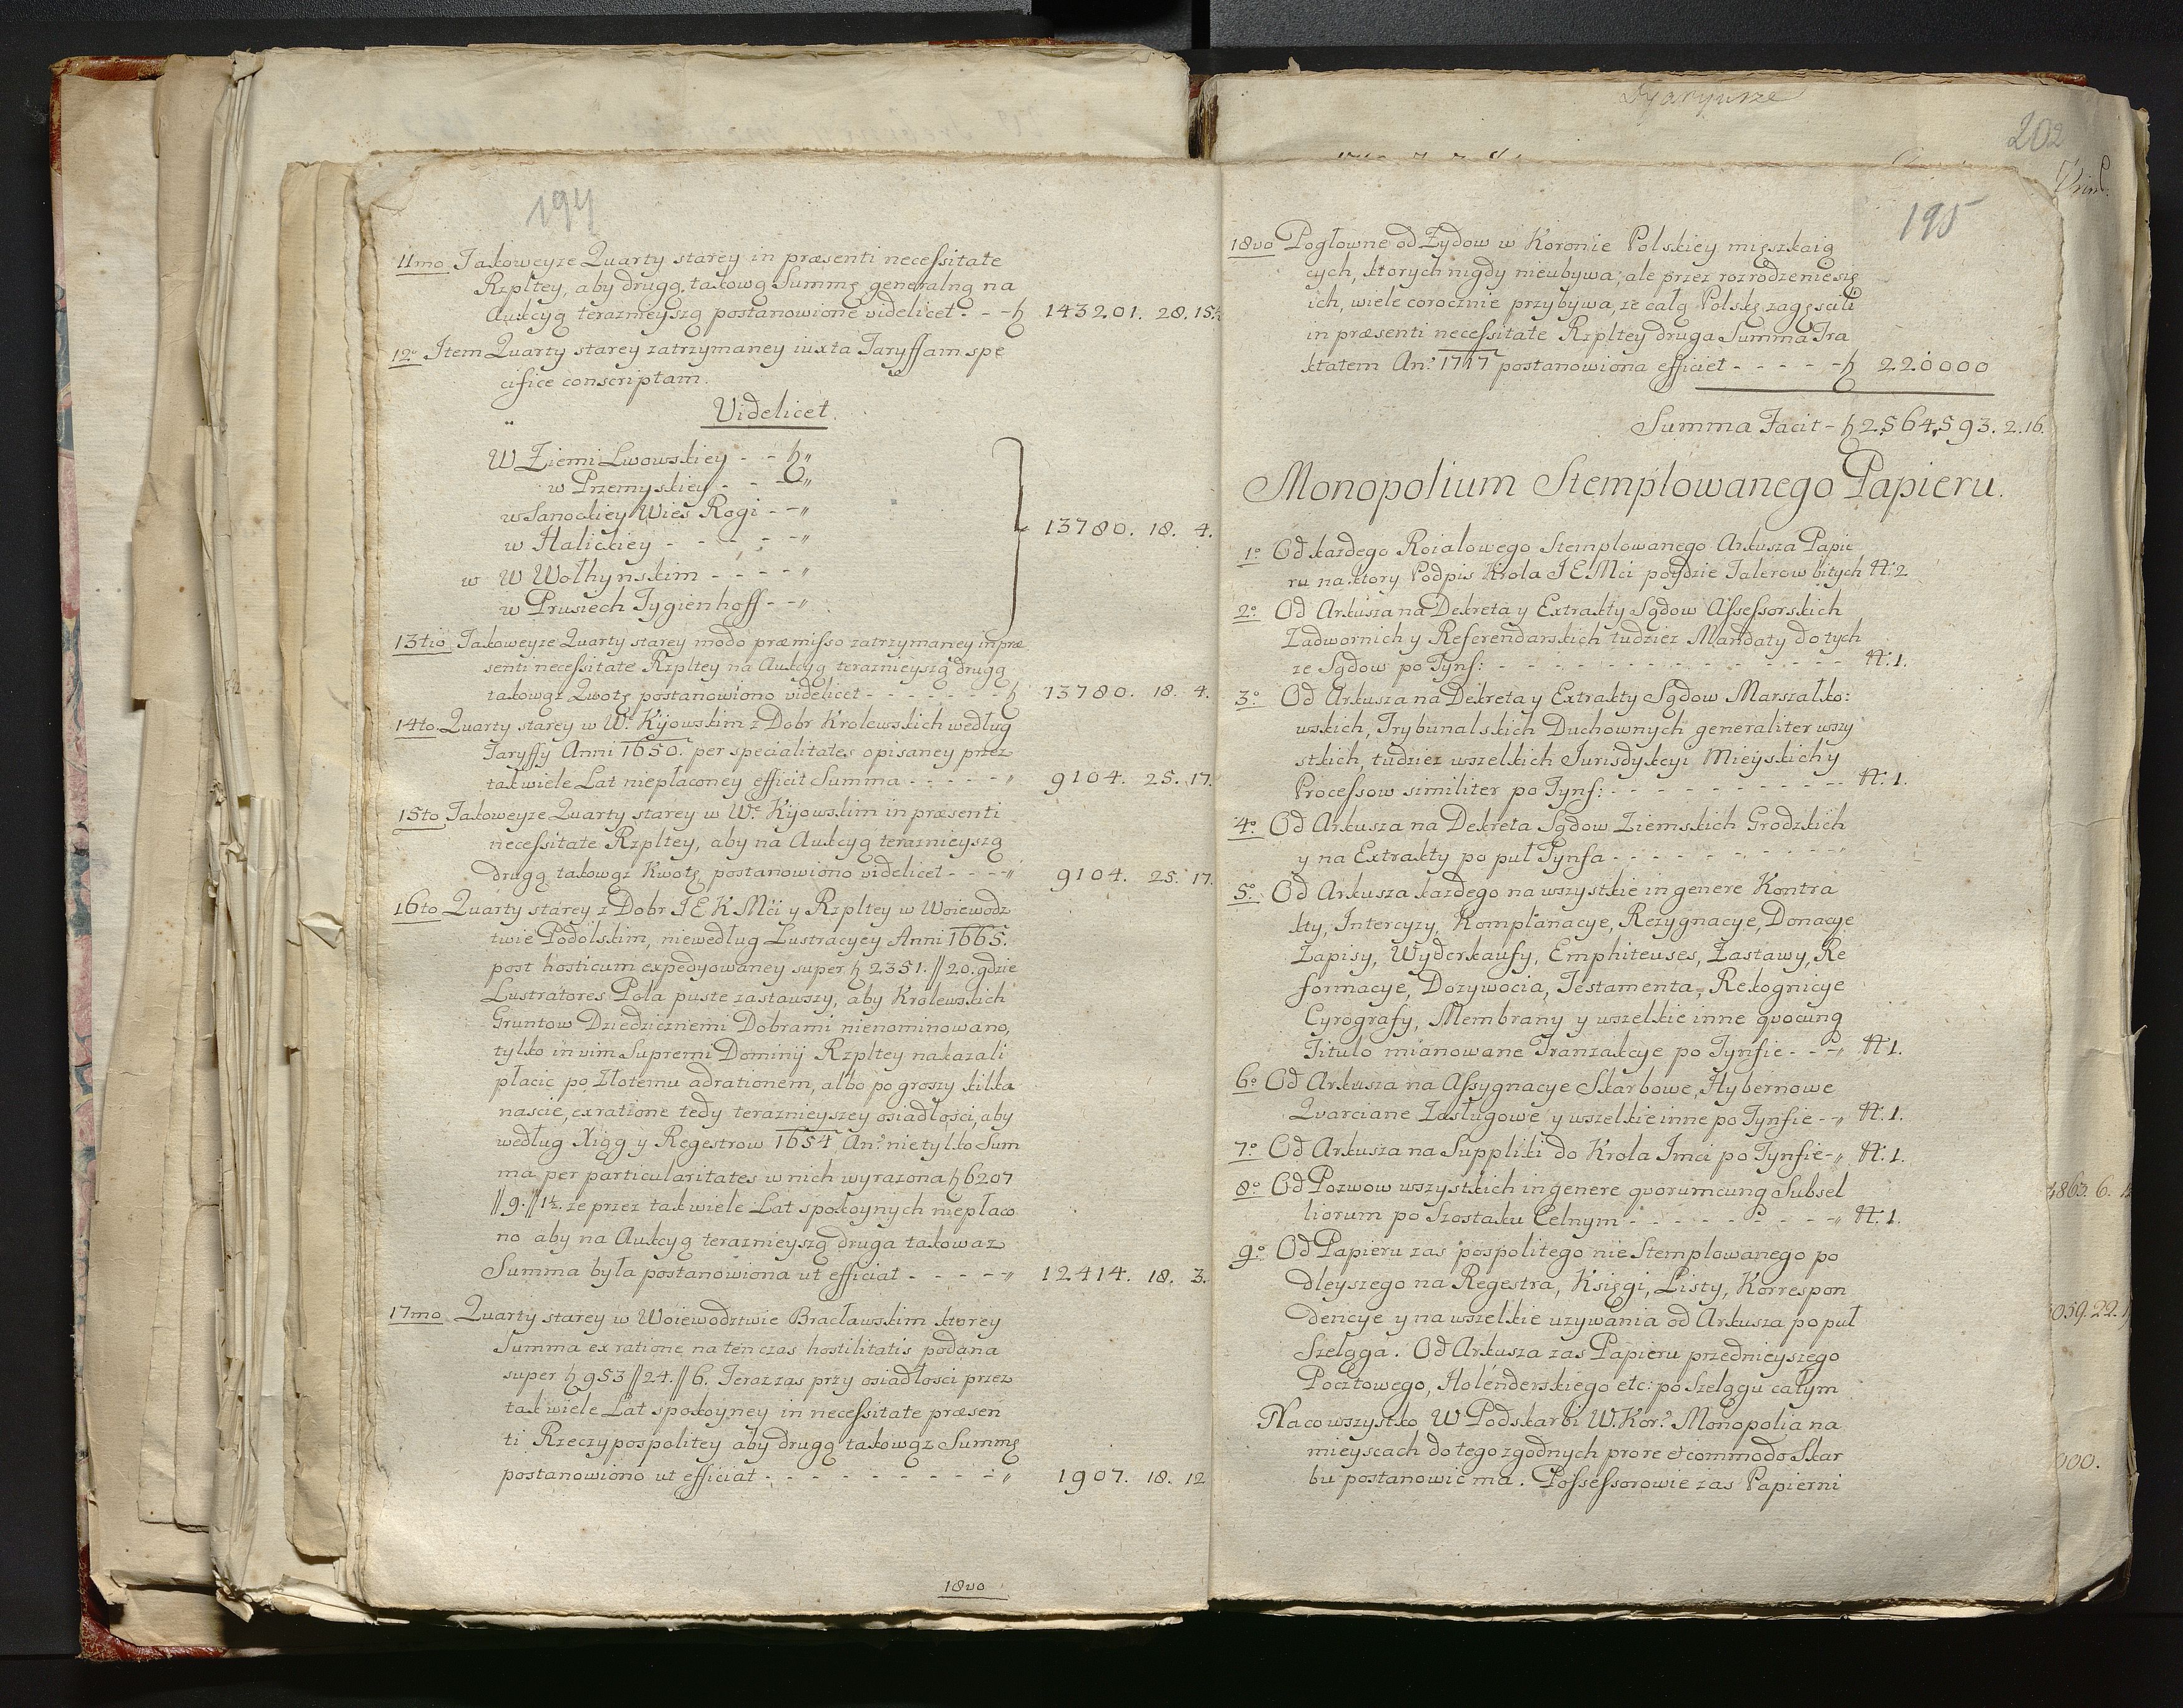 194
11mo Jakoweyze Quarty starey in præsenti necessitate
Rzpltey, aby drugą, takową Summę generalną na
Aukcyą teraznieyszą postanowione videlicet - - ꞧ 143201. 28. 15½
12o Item Quarty starey zatrzymaney iuxta Taryffam spe
cifice conscriptam.
Videlicet.
W Ziemi Lwowskiey - - ꞧ „
w Przemyskiey - - - „
w Sanockiey Wies Rogi - - „
w Halickiey - - - - - „
w W Wołhynskim - - - - „
w Prusiech Tygienhoff - - „
13780. 18. 4.
13tio Jakoweyze Quarty starey modo præmisso zatrzymaney in præ
senti necessitate Rzpltey na Aukcyą teraznieyszą drugą
takowąz Quotę postanowiono videlicet - - - - - - - ꞧ 13780. 18. 4.
14to Quarty starey w We Kijowskim z Dobr Krolewskich według
Taryffy Anni 1650. per specialitates opisaney przez
tak wiele Lat niepłaconey efficit Summa - - - - - „ 9104. 25. 17.
15to Jakoweyze Quarty starey w We Kijowskim in præsenti
necessitate Rzpltey, aby na Aukcyą teraznieyszą
drugą takowąz Kwotę postanowiono videlicet - - - „ 9104. 25. 17.
16to Quarty starey z Dobr J E K Mći y Rzpltey w Woiewodz
twie Podolskim, niewedług Lustracyey Anni 1665.
post hosticum expedyowaney super ꞧ 2351. // 20. gdzie
Lustratores Pola puste zastawszy, aby Krolewskich
Gruntow Dziedzicznemi Dobrami nienominowano,
tylko in vim Supremi Dominij Rzpltey nakazali
płacic po Złotemu ad rationem, albo po groszy kilka
nascie, ex ratione tedy teraznieyszey osiadłosci, aby
według Xiąg y Regestrow 1654 Ano nie tylko Sum
ma per particularitates w nich wyrazona ꞧ 6207
// 9. // 1½. ze przez tak wiele Lat spokoynych niepłaco
no aby na Aukcyą teraznieyszą druga takowaz
Summa była postanowiona ut efficiat - - - - - „ 12414. 18. 3.
17mo Quarty starey w Woiewodztwie Bracławskim ktorey
Summa ex ratione na ten czas hostilitatis podana
super ꞧ 953 // 24. // 6. Teraz zas przy osiadłosci przez
tak wiele Lat spokoyney in necessitate præsen
ti Rzeczypospolitey aby drugą takowąz Summę
postanowiono ut efficiat - - - - - - - - - „ 1907. 18. 12
18vo
Dyaryusze
202
195
18vo Pogłowne od Zydow w Koronie Polskiey mięszkaią
cych, ktorych nigdy nieubywa, ale przez rozrodzenie się
ich, wiele corocznie przybywa, ze całą Polskę zagęscili
in præsenti necessitate Rzpltey druga Summa Tra
ktatem Ano 1717 postanowiona efficiet - - - - - ꞧ 220000
Summa Facit - ꞧ 2564593. 2. 16.
Monopolium Stemplowanego Papieru.
1o Od kazdego Roialowego Stemplowanego Arkusza Papie
ru na ktory Podpis Krola J E Mci poydzie Talerow bitych tt: 2
2o Od Arkusza na Dekreta y Extrakty Sądow Assessorskich
Zadwornich y Referendarskich tudziez Mandaty do tych
ze Sądow po Tynf: - - - - - - - - - - - - tt: 1.
3o Od Arkusza na Dekreta y Extrakty Sądow Marszałko:
wskich, Trybunalskich Duchownych generaliter wszy
stkich, tudziez wszelkich Jurisdykcyi Mieyskich y
Processow similiter po Tynf: - - - - - - - - - tt: 1.
4o Od Arkusza na Dekreta Sądow Ziemskich Grodzkich
y na Extrakty po puł Tynfa - - - - - - - - - „
5o Od Arkusza kazdego na wszystkie in genere Kontra
kty, Intercyzy, Komplanacye, Rezygnacye, Donacye
Zapisy, Wyderkaufy, Emphiteuses, Zastawy, Re
formacye, Dozywocia, Testamenta, Rekognicye
Cyrografy, Membrany y wszelkie inne qvocunq
Titulo mianowane Tranzakcye po Tynfie - - - „ tt: 1.
6o Od Arkusza na Assygnacye Skarbowe, Hybernowe
Qvarciane Zasługowe y wszelkie inne po Tynfie - „ tt: 1.
7o Od Arkusza na Suppliki do Krola Jmci po Tynfie - „ tt: 1.
8o Od Pozwow wszystkich in genere qvorumcunq Subsel
liorum po Szostaku Celnym - - - - - - - - „ tt: 1.
9o Od Papieru zas pospolitego nie Stemplowanego po
dleyszego na Regestra, Księgi, Listy, Korrespon
dencye y na wszelkie uzywania od Arkusza po puł
Szeląga. Od Arkusza zas Papieru przednieyszego
Pocztowego, Holénderskiego etc: po Szelągu całym
Na co wszystko W Podskarbi W. Kor: Monopolia na
mieyscach do tego zgodnych pro re et commodo Skar
bu postanowic ma. Possessorowie zas Papierni
863. 6.
059. 22.
000.